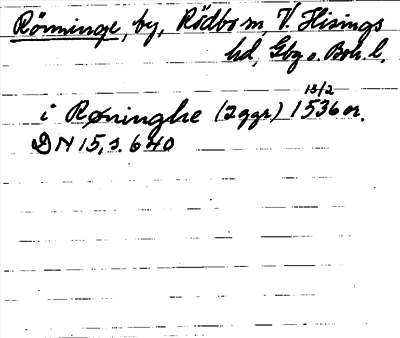 Rönninge, by, Rödbo sn, V. Hisings
hd, Gbg o. Boh. l.
13/2
i Røninghe (2 ggr) 1536 or.
DN 15, s. 640